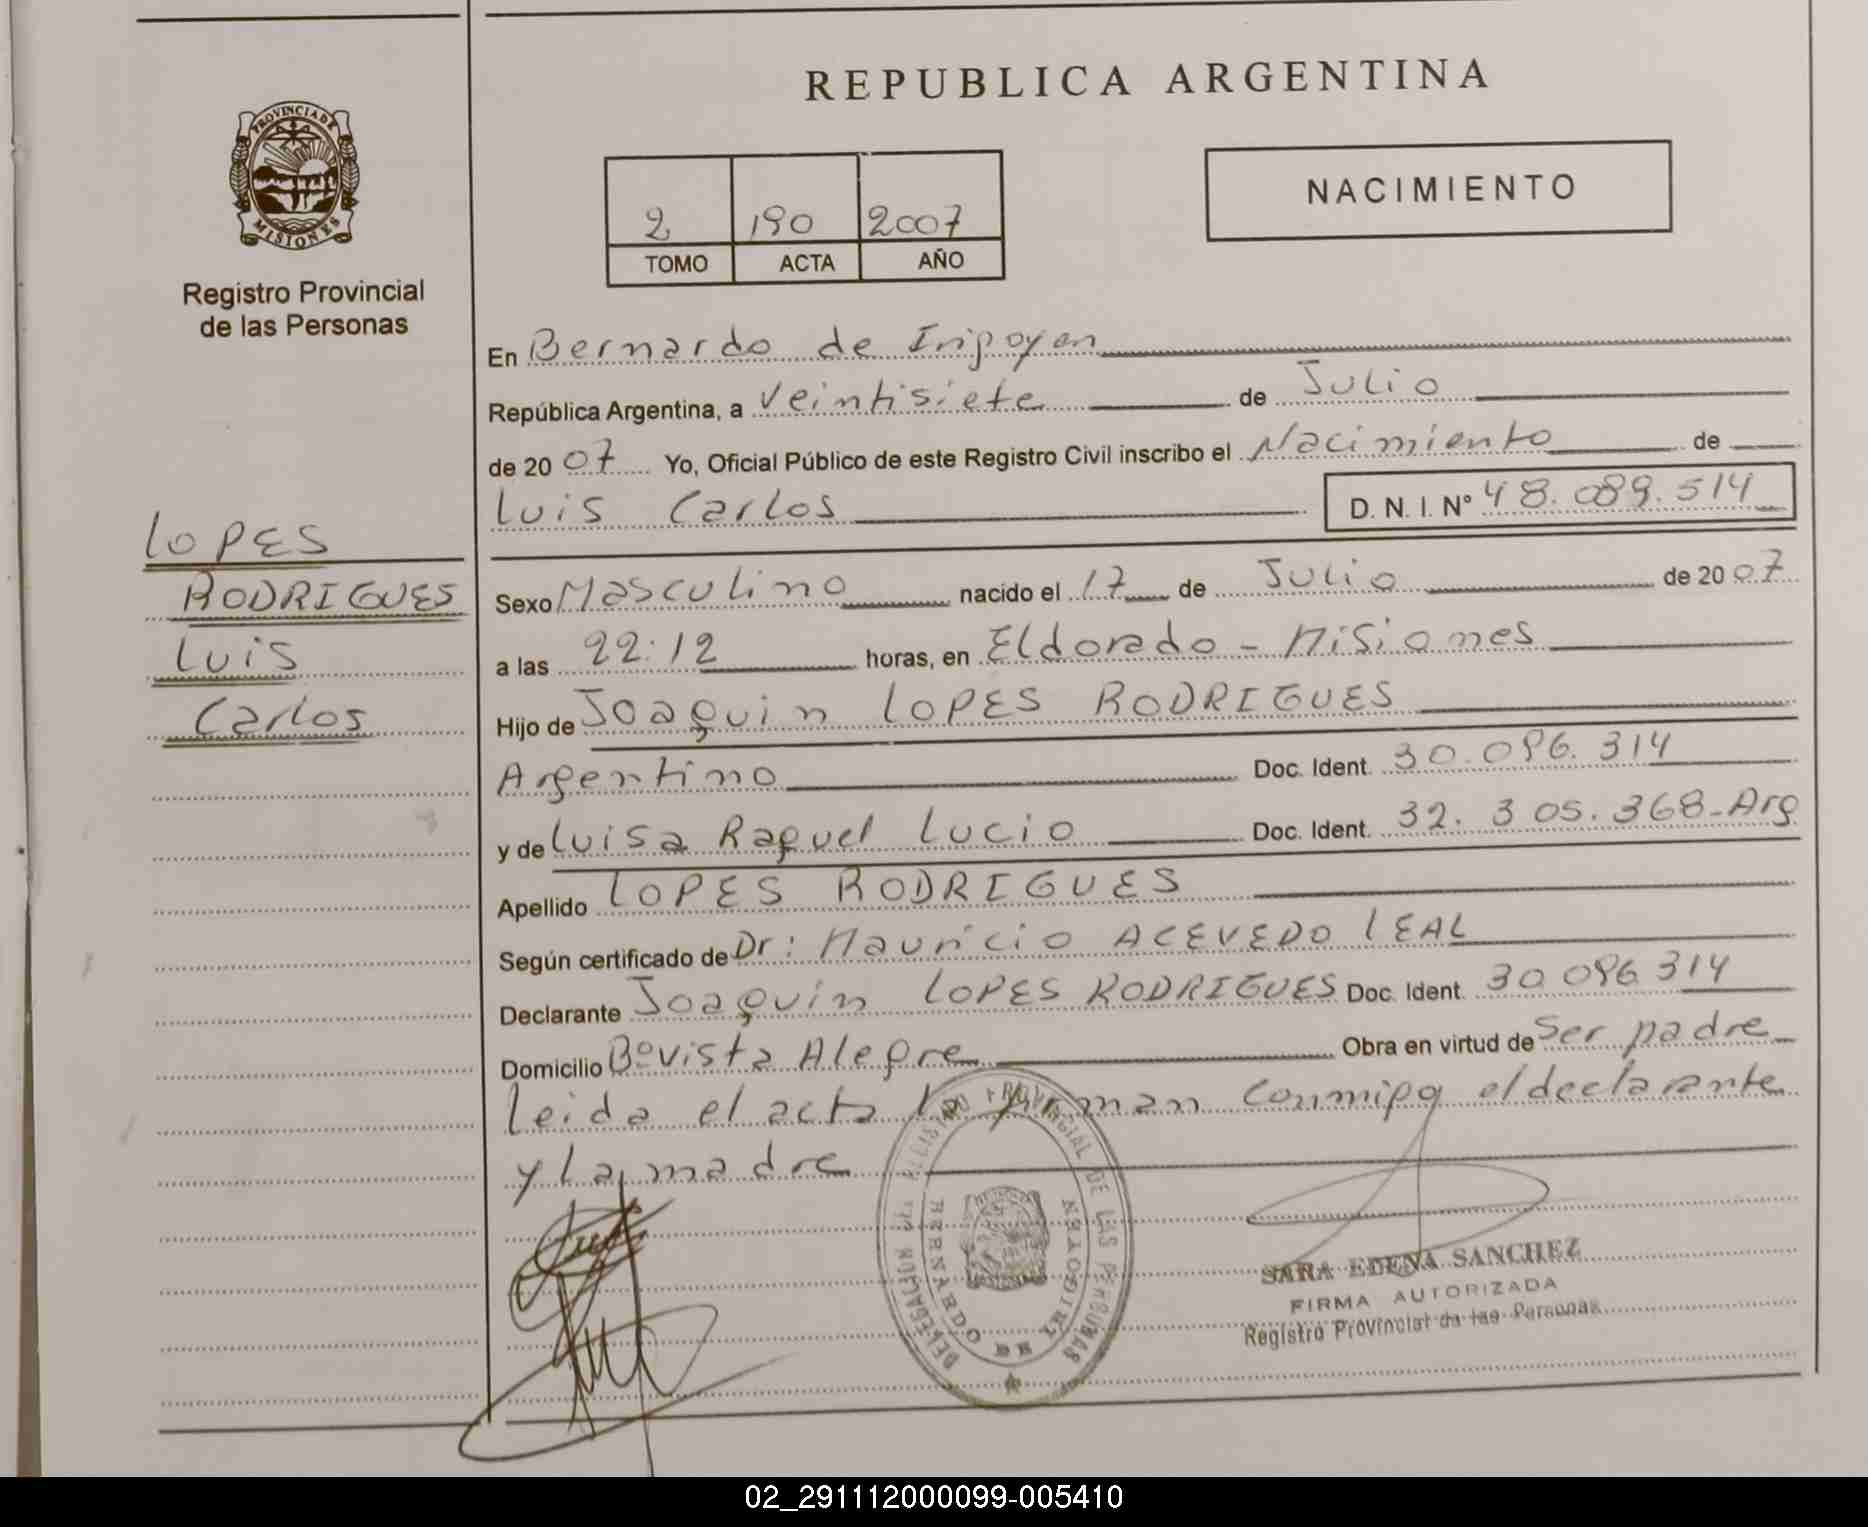 REPUBLICA ARGENTINA
PROVINCIA DE
MISIONES
Registro Provincial
de las Personas
2 190 2007
TOMO ACTA AÑO
NACIMIENTO
En Bernardo de Irigoyen
República Argentina, a Veintisiete de Julio
de 2007 Yo, Oficial Público de este Registro Civil inscribo el Nacimiento de
Luis Carlos D. N. I. Nº 48.089.514
LOPES
RODRIGUES
Luis
Carlos
Sexo Masculino nacido el 17 de Julio de 2007
a las 22:12 horas, en Eldorado - Misiones
Hijo de Joaquin LOPES RODRIGUES
Argentino Doc. Ident. 30.096.314
y de Luisa Raquel Lucio Doc. Ident. 32.305.368-Arg
Apellido LOPES RODRIGUES
Según certificado de Dr: Mauricio ACEVEDO LEAL
Declarante Joaquin LOPES RODRIGUES Doc. Ident. 30.096.314
Domicilio Bº Vista Alegre Obra en virtud de Ser padre
leida el acta la firman conmigo el declarante
y la madre
DELEGACION REGISTRO PROVINCIAL DE LAS PERSONAS
BERNARDO DE IRIGOYEN
SARA EDENA SANCHEZ
FIRMA AUTORIZADA
Registro Provincial de las Personas
02_291112000099-005410